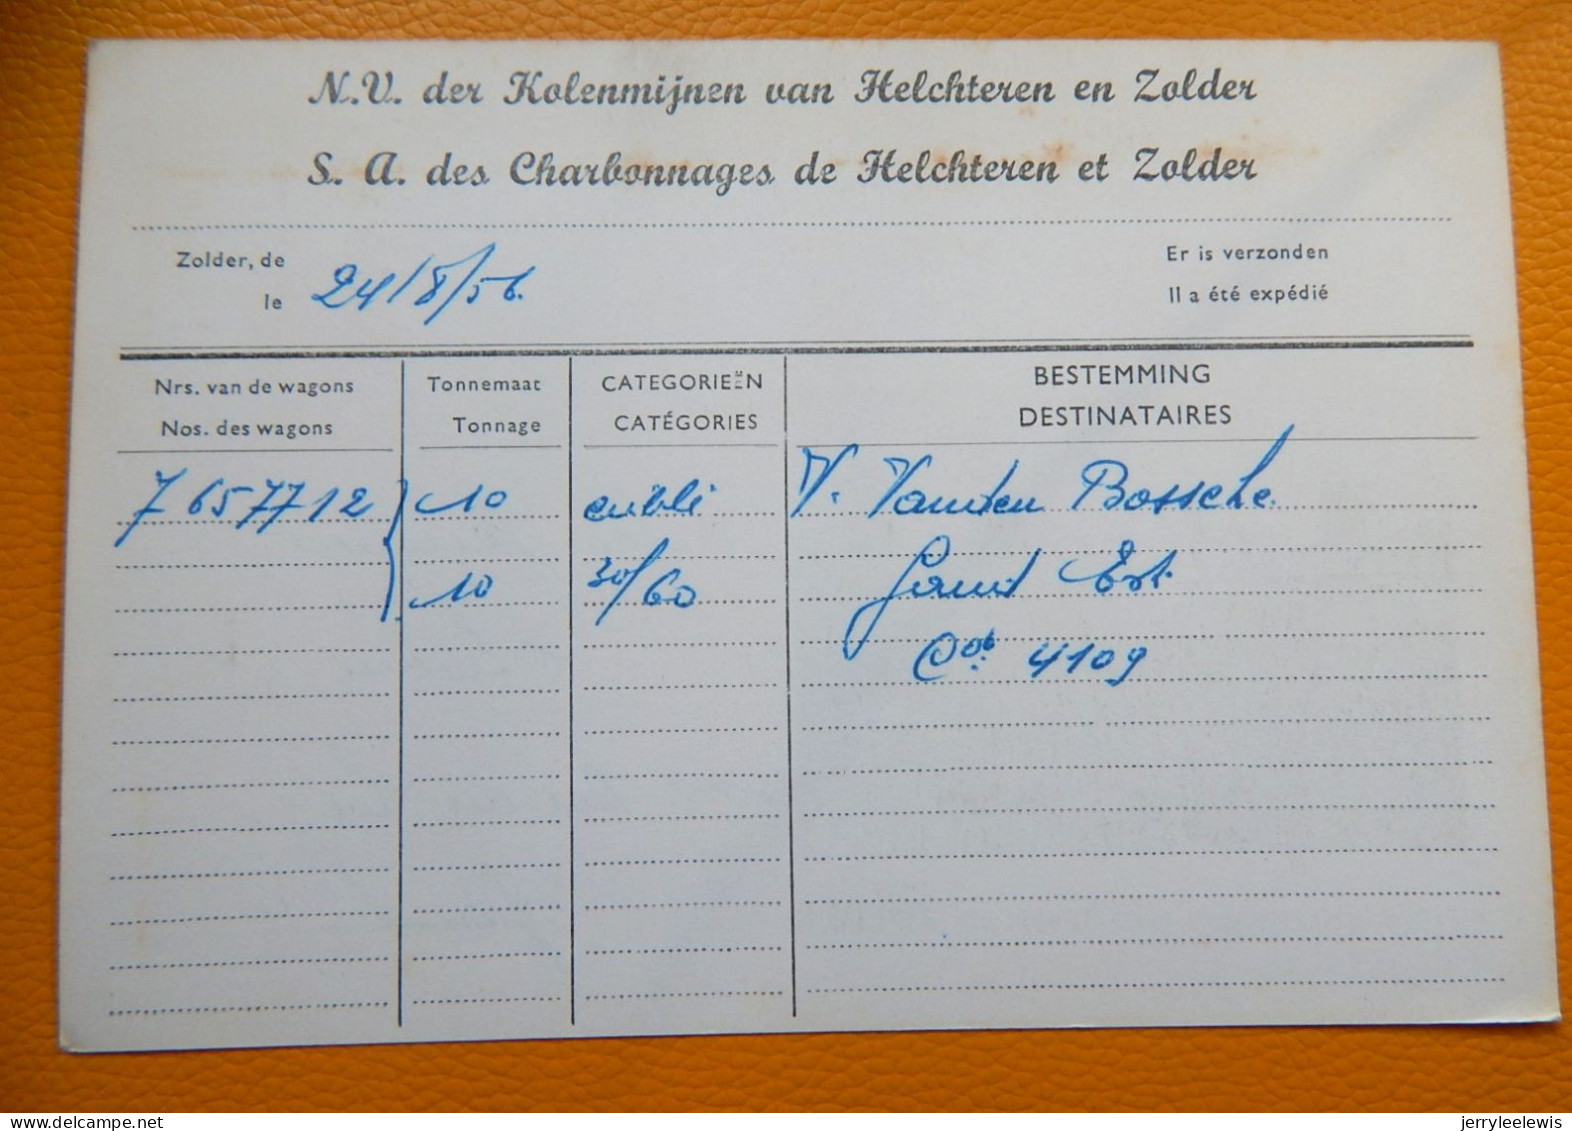 N.V. der Kolenmijnen van Helchteren en Zolder
S. A. des Charbonnages de Helchteren et Zolder
Zolder, de
le 24/8/56.
Er is verzonden
Il a été expédié
Nrs. van de wagons Tonnemaat CATEGORIEËN BESTEMMING
Nos. des wagons Tonnage CATÉGORIES DESTINATAIRES
7657712 10 criblé V. Vanden Bossche
10 30/60 Gand Est.
4109
www.delcampe.net
jerryleelewis